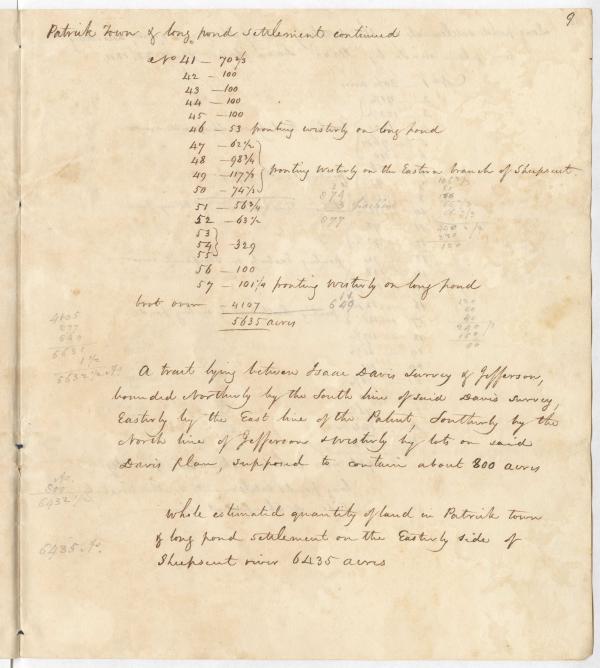 9
Patrick Town & long pond settlement continued
No 41 – 70 2/3
42 – 100
43 – 100
44 – 100
45 – 100
46 – 53 fronting westerly on long pond
47 – 62 1/2
48 – 98 3/4
49 – 117 1/2 fronting westerly on the Eastern branch of Sheepscut.
50 – 74 1/2
51 – 56 3/4
52 – 63 1/2
53
54 – 329
55
56 – 100
57 – 101 1/4 fronting westerly on long pond
brot over – 4107
5635 acres
A tract lying between Isaac Davis Survey & Jefferson,
bounded Northerly by the South line of said Davis survey,
Easterly by the East line of the Patent, Southerly by the
North line of Jefferson & westerly by lots on said
Davis plan, supposed to contain about 800 acres
Whole estimated quantity of land in Patrick town
& long pond settlement on the Easterly side of
Sheepscut river 6435 acres
874
877
649
4105
877
5631
1 1/2
5632 1/2
800
6432 1/2
6435